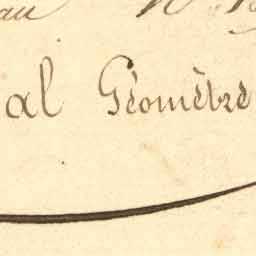 au
al Géomètre